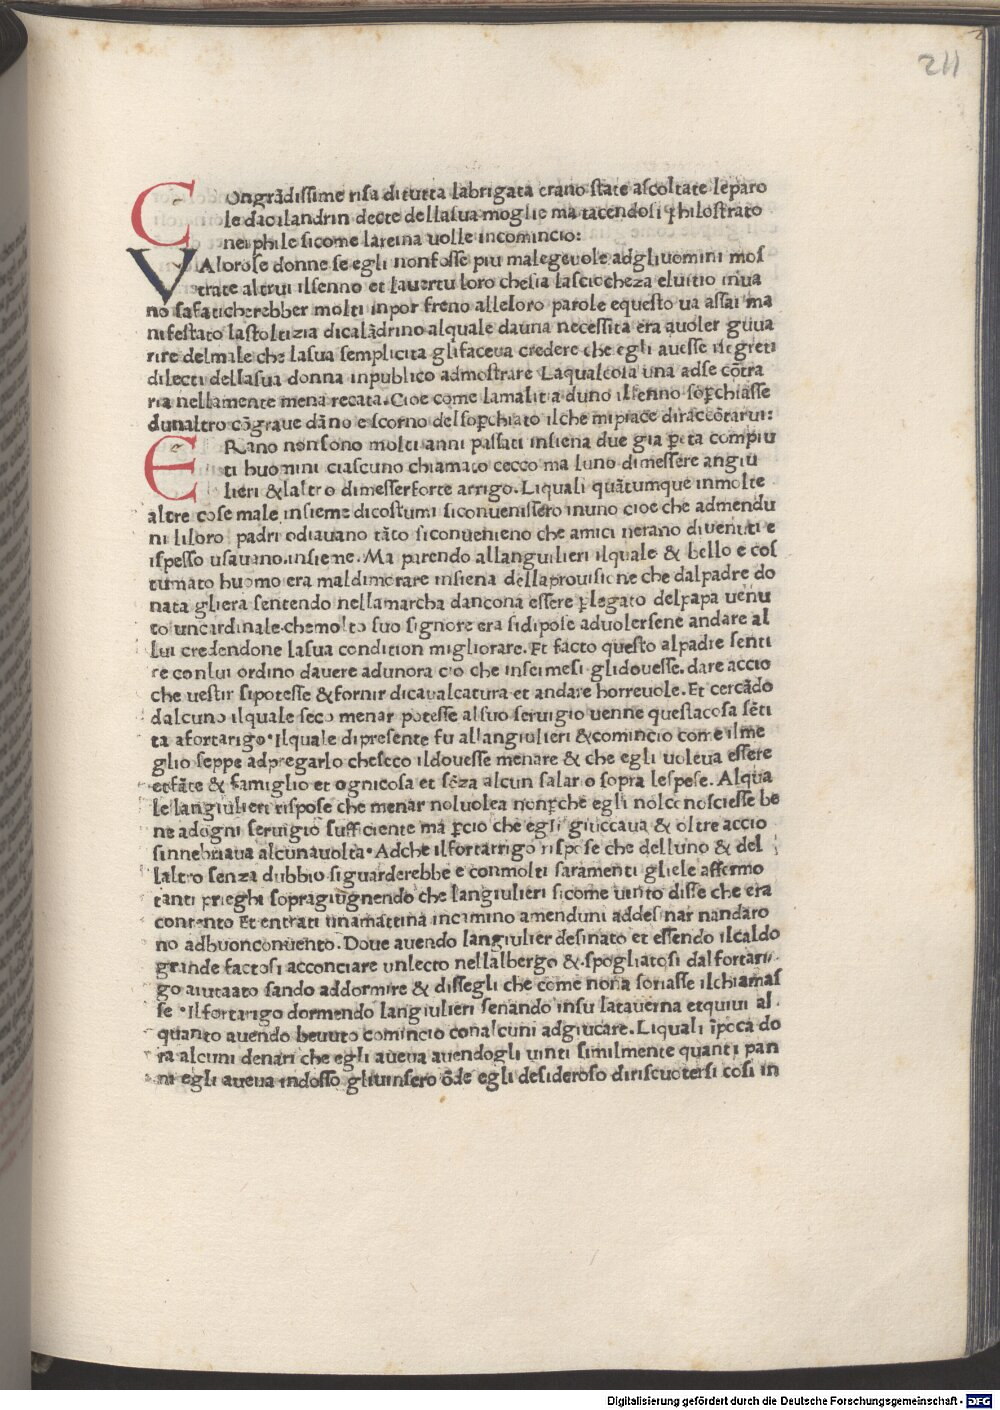 211
COngrādissime risa di tutta labrigata erano state ascoltate leparo
le dacalandrin decte dellasua moglie ma tacendosi philostrato
neiphile sicome lareina uolle incomincio:
VAlorose donne se egli nonfosse piu malegeuole adgliuomini mos
trate altrui ilsenno et lauertu loro chesia lasciocheza eluitio inua
no safaticherebber molti inpor freno alleloro parole equesto ua assai ma
nifestato lastoltizia dicalādrino alquale dauna necessita era auoler guua
rire delmale che lasua semplicita glifaceua credere che egli auesse isegreti
dilecti dellasua donna inpublico admostrare Laqualcosa una adse cōtra
ria nellamente mena recata. Cioe come lamalitia duno ilsenno sop̄chiasse
dunaltro cōgraue dāno e scorno delsop̄chiato ilche mipiace diraccōtarui:
ERano nonsono molti anni passati insiena due gia p̄ eta compiu
ti huomini ciascuno chiamato cecco ma luno dimessere angiu
lieri & laltro dimesserforte arrigo. Liquali quātumque inmolte
altre cose male insieme dicostumi siconuenissero inuno cioe che admendu
ni liloro padri odiauano tāto siconuenieno che amici nerano diuenuti e
ispesso usauano.insieme. Ma parendo allangiulieri ilquale & bello e cos
tumato huomo era maldimorare insiena dellaprouisione che dalpadre do
nata gliera sentendo nellamarcha dancona essere p̄ legato delpapa uenu
to uncardinale.chemolto suo signore era sidipose aduolersene andare al
lui credendone lasua condition migliorare. Et facto questo alpadre senti
re conlui ordino dauere adunora cio che inseimesi glidouesse. dare accio
che uestir sipotesse & fornir dicaualcatura et andare horreuole. Et cercādo
dalcuno ilquale seco menar potesse alsuo seruigio uenne questacosa sēti
ta afortarigo. Ilquale dipresente fu allangiulieri & comincio come ilme
glio seppe adpregarlo cheseco ildouesse menare & che egli uoleua essere
et fāte & famiglio et ognicosa et sēza alcun salario sopra lespese. Alqua
le langiulieri rispose che menar noluolea nonp̄che egli nolconosciesse be
ne adogni seruigio sufficiente ma p̄cio che egli giuccaua & oltre accio
sinnebriaua alcunauolta. Adche ilfortarrigo rispose che delluno & del
laltro senza dubbio siguarderebbe e conmolti saramenti gliele affermo
tanti prieghi sopragiugnendo che langiulieri sicome uinto disse che era
contento Et entrati unamattina incamino amenduni addesinar nandaro
no adbuonconuento. Doue auendo langiulier desinato et essendo ilcaldo
grande factosi acconciare unlecto nellalbergo & spogliatosi dalfortari
go aiutaato sando addormire & dissegli che come nona sonasse ilchiamas
se. Ilfortarigo dormendo langiulieri senando insu lataverna etquiui al
quanto auendo beuuto comincio conalcuni adgiucare. Liquali īpoca do
ra alcuni denari che egli aueua auendogli uinti similmente quanti pan
ni egli aueua indosso gliuinsero ōde egli desideroso diriscuotersi cosi in
Digitalisierung gefördert durch die Deutsche Forschungsgemeinschaft - DFG